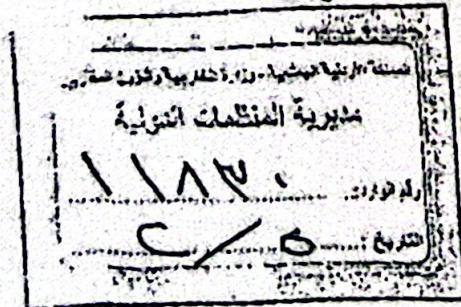 المملكة الأردنية الهاشمية - وزارة الخارجية وشؤون المغتربين
مديرية المنظمات الدولية
رقم الوارد ١١٨٣٠
التاريخ ٥/٢